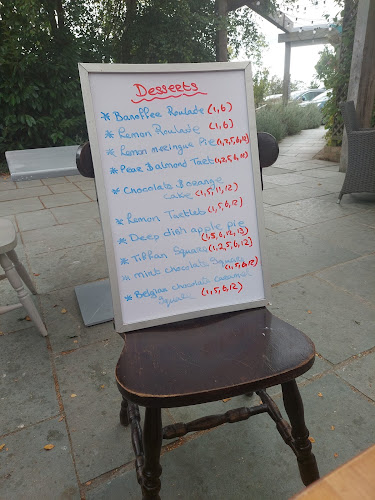 Desserts
* Banoffee Roulade (1,6)
* Lemon Roulade (1,6)
* Lemon meringue Pie
* Pear & almond Tart
* Chocolate & orange
cake (1,5,11,12)
* Lemon Tartlets (1,5,6,12)
* Deep dish apple pie
(1,5,6,12,13)
* Tiffan Square (1,2,5,6,12)
* mint chocolate Square
(1,5,6,12)
* Belgian chocolate caramel
Square (1,5,6,12)